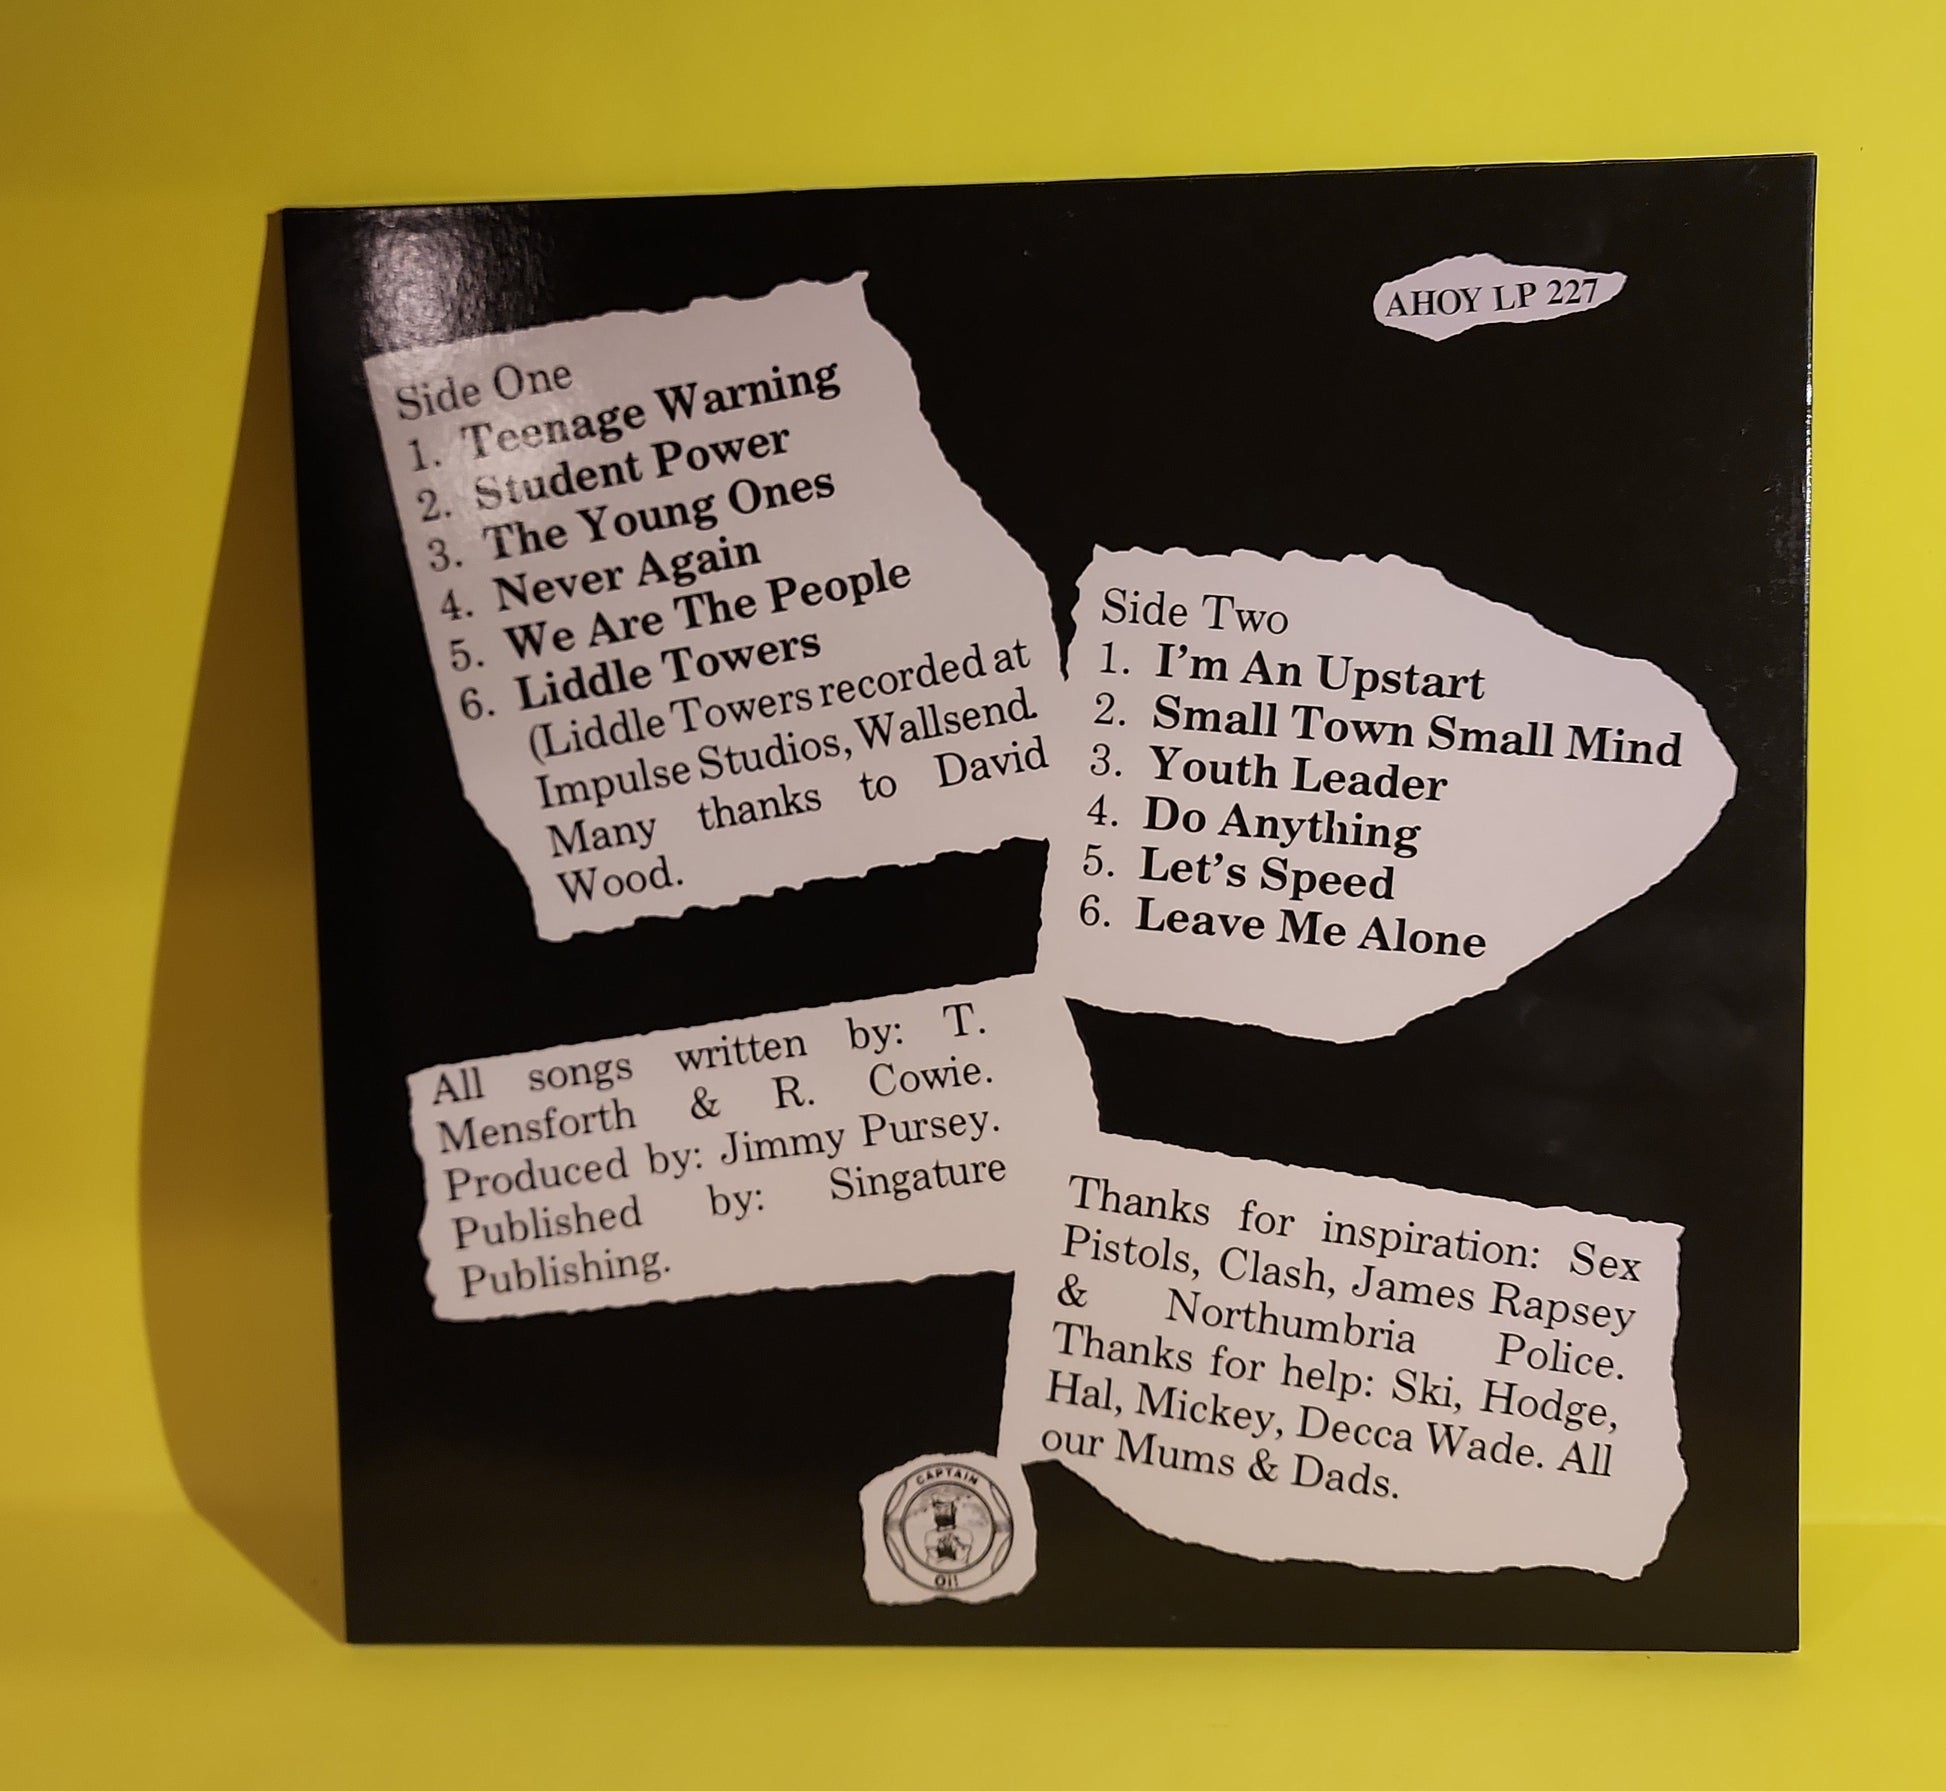 AHOY LP 227
Side One
1. Teenage Warning
2. Student Power
3. The Young Ones
4. Never Again
5. We Are The People
6. Liddle Towers
(Liddle Towers recorded at
Impulse Studios, Wallsend.
Many thanks to David
Wood.
Side Two
1. I'm An Upstart
2. Small Town Small Mind
3. Youth Leader
4. Do Anything
5. Let's Speed
6. Leave Me Alone
All songs written by: T.
Mensforth & R. Cowie.
Produced by: Jimmy Pursey.
Published by: Singature
Publishing.
Thanks for inspiration: Sex
Pistols, Clash, James Rapsey
& Northumbria Police.
Thanks for help: Ski, Hodge,
Hal, Mickey, Decca Wade. All
our Mums & Dads.
CAPTAIN
Oi!